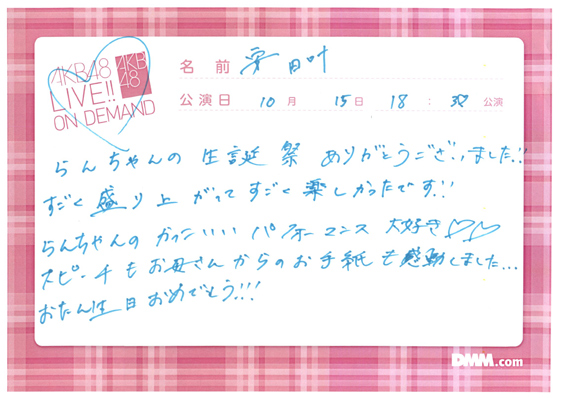 AKB48
LIVE!!
ON DEMAND
AKB
48
名前 安田叶
公演日 10月 15日 18:30 公演
らんちゃんの生誕祭ありがとうございました!!
すごく盛り上がってすごく楽しかったです!!
らんちゃんのかっこいいパフォーマンス大好き♡♡
スピーチもお母さんからのお手紙も感動しました...
おたん生日おめでとう!!!
DMM.com